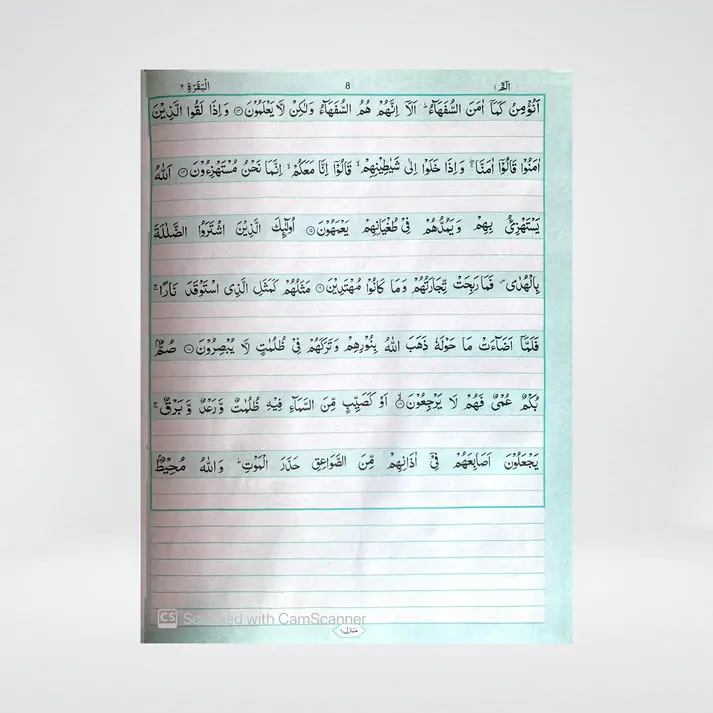 الٓمّٓ ١ 8 اَلْبَقَرَة ٢
اَنُؤْمِنُ كَمَاۤ اٰمَنَ السُّفَهَآءُ ؕ اَلَاۤ اِنَّهُمْ هُمُ السُّفَهَآءُ وَلٰكِنْ لَّا يَعْلَمُوْنَ ۝۱۳ وَ اِذَا لَقُوا الَّذِيْنَ
اٰمَنُوْا قَالُوْۤا اٰمَنَّا ۖۚ وَ اِذَا خَلَوْا اِلٰى شَيٰطِيْنِهِمْ ۙ قَالُوْۤا اِنَّا مَعَكُمْ ۙ اِنَّمَا نَحْنُ مُسْتَهْزِءُوْنَ ۝۱۴ اَللّٰهُ
يَسْتَهْزِئُ بِهِمْ وَ يَمُدُّهُمْ فِيْ طُغْيَانِهِمْ يَعْمَهُوْنَ ۝۱۵ اُولٰٓئِكَ الَّذِيْنَ اشْتَرَوُا الضَّلٰلَةَ
بِالْهُدٰى ۪ فَمَا رَبِحَتْ تِّجَارَتُهُمْ وَمَا كَانُوْا مُهْتَدِيْنَ ۝۱۶ مَثَلُهُمْ كَمَثَلِ الَّذِى اسْتَوْقَدَ نَارًا ۚ
فَلَمَّاۤ اَضَآءَتْ مَا حَوْلَهٗ ذَهَبَ اللّٰهُ بِنُوْرِهِمْ وَ تَرَكَهُمْ فِيْ ظُلُمٰتٍ لَّا يُبْصِرُوْنَ ۝۱۷ صُمٌّۢ
بُكْمٌ عُمْيٌ فَهُمْ لَا يَرْجِعُوْنَ ۝۱۸ۙ اَوْ كَصَيِّبٍ مِّنَ السَّمَآءِ فِيْهِ ظُلُمٰتٌ وَّ رَعْدٌ وَّ بَرْقٌ ۚ
يَجْعَلُوْنَ اَصَابِعَهُمْ فِيْۤ اٰذَانِهِمْ مِّنَ الصَّوَاعِقِ حَذَرَ الْمَوْتِ ؕ وَاللّٰهُ مُحِيْطٌۢ
CS Scanned with CamScanner
منزل ١